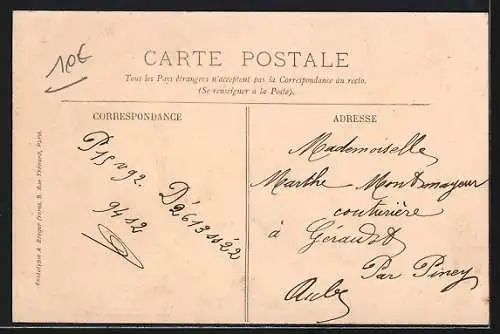 10€
CARTE POSTALE
Tous les Pays étrangers n'acceptent pas la Correspondance au recto.
(Se renseigner à la Poste).
CORRESPONDANCE
P1502.
D'26131122
9412
ADRESSE
Mademoiselle
Marthe Montmayeur
couturière
à Géraudot
Par Piney
Aube
Phototypie A. Breger frères, 9, Rue Thénard, Paris.